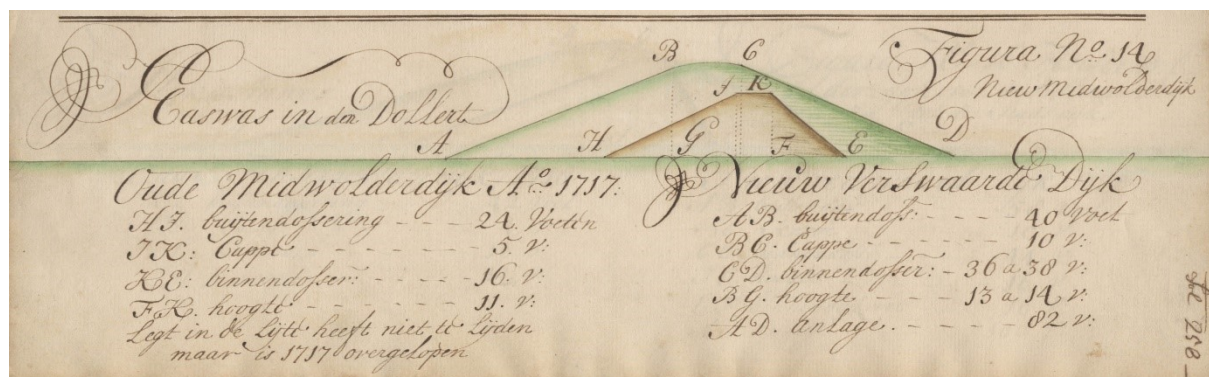 Figura No. 14
Nieuw Midwolderdijk
Caswas in den Dollert
B C
J K
A H G F E D
Oude Midwolderdijk Ao. 1717:
HJ. buijtendossering - - - 24. Voeten
JK: Cappe - - - - - - - 5. v:
KE: binnendosser: - - - 16. v:
FK. hoogte - - - - - - 11. v:
Legt in de Lijte heeft niet te Lijden
maar is 1717 overgelopen
Nieuw Verswaarde Dijk
AB. buijtendoss: - - - - - 40 Voet
BC. Cappe - - - - - - 10 v:
CD. binnendosser: - 36 a 38 v:
BG. hoogte - - - - 13 a 14 v:
AD. anlage. - - - - - 82 v:
258